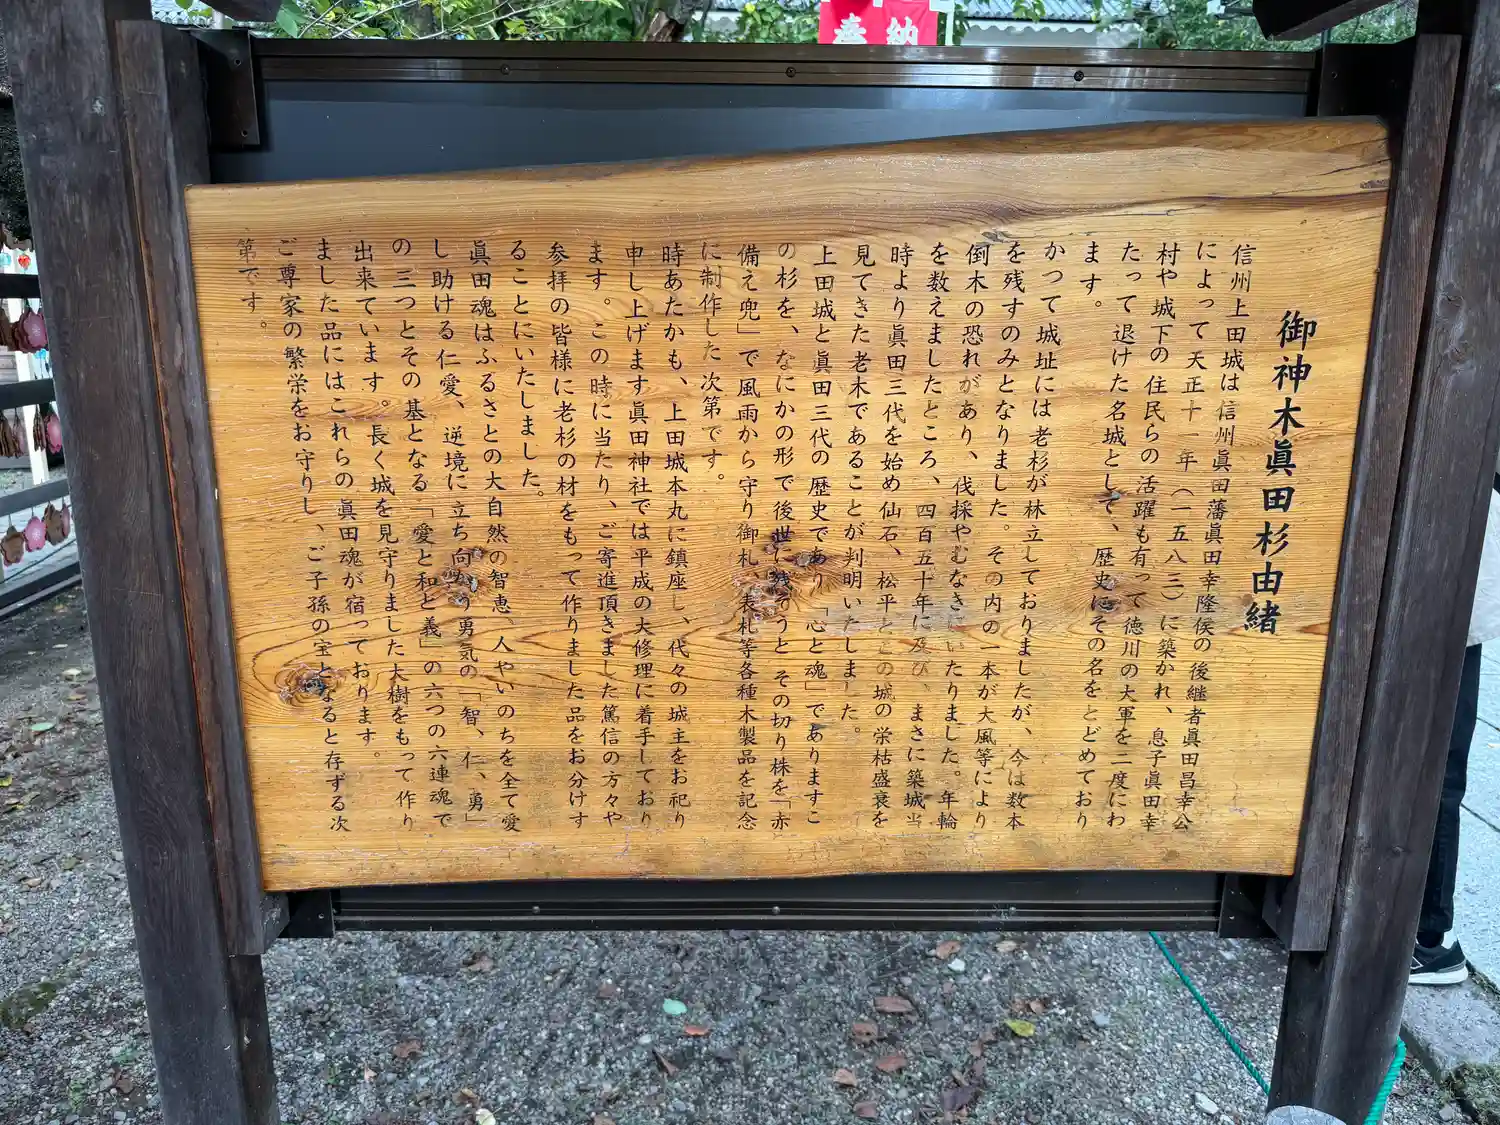 奉納
御神木眞田杉由緒
信州上田城は信州眞田藩眞田幸隆侯の後継者眞田昌幸公
によって天正十一年（一五八三）に築かれ、息子眞田幸
村や城下の住民らの活躍も有って徳川の大軍を二度にわ
たって退けた名城として、歴史にその名をとどめており
ます。
かつて城址には老杉が林立しておりましたが、今は数本
を残すのみとなりました。その内の一本が大風等により
倒木の恐れがあり、伐採やむなきにいたりました。年輪
を数えましたところ、四百五十年に及び、まさに築城当
時より眞田三代を始め仙石、松平とこの城の栄枯盛衰を
見てきた老木であることが判明いたしました。
上田城と眞田三代の歴史であり「心と魂」でありますこ
の杉を、なにかの形で後世に残そうと その切り株を「赤
備え兜」で風雨から守り御札、表札等各種木製品を記念
に制作した次第です。
時あたかも、上田城本丸に鎮座し、代々の城主をお祀り
申し上げます眞田神社では平成の大修理に着手しており
ます。この時に当たり、ご寄進頂きました篤信の方々や
参拝の皆様に老杉の材をもって作りました品をお分けす
ることにいたしました。
眞田魂はふるさとの大自然の智恵、人やいのちを全て愛
し助ける仁愛、逆境に立ち向かう勇気の「智、仁、勇」
の三つとその基となる「愛と和と義」の六つの六連魂で
出来ています。長く城を見守りました大樹をもって作り
ました品にはこれらの眞田魂が宿っております。
ご尊家の繁栄をお守りし、ご子孫の宝となると存ずる次
第です。